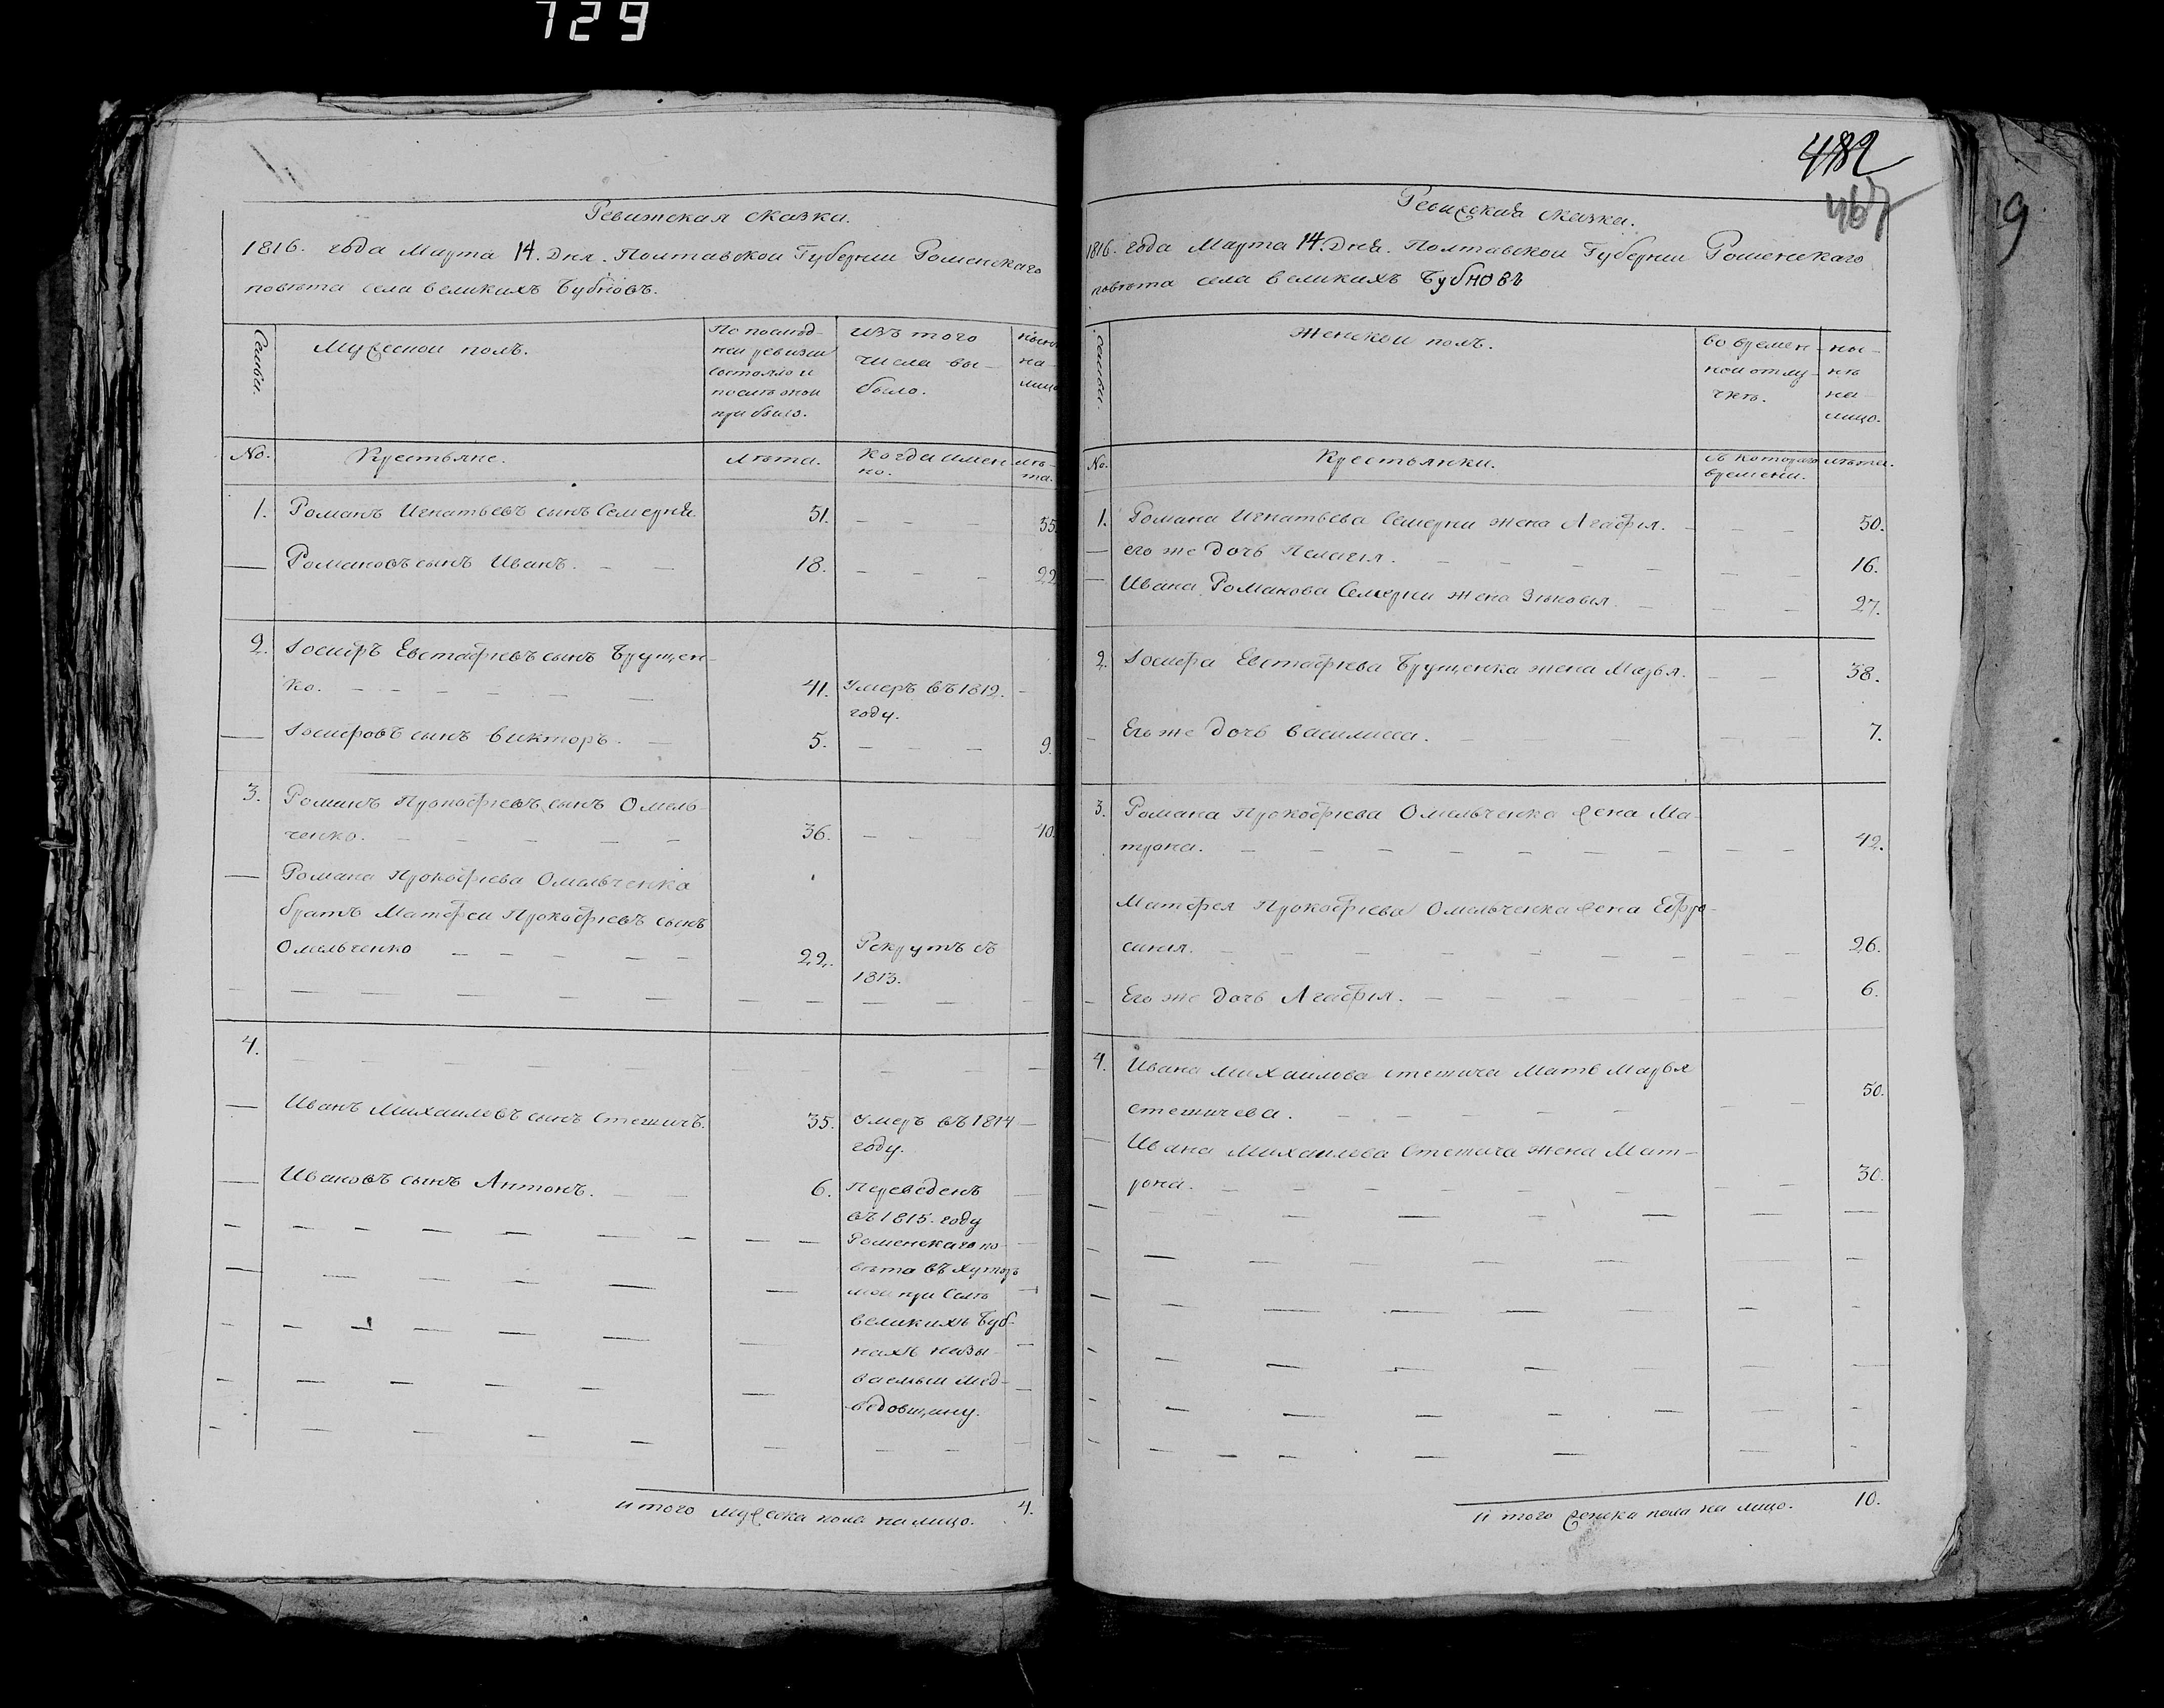 729
Ревижская сказка.
1816. года Марта 14. Дня. Полтавской Губернии Роменскаго
повѣта села великихъ Бубновъ.
Семьи.
Мужеской полъ.
По послѣд-
ней ревизии
состояло и
послѣ оной
прибыло.
изъ того
числа вы-
было.
нынѣ
на-
лицо
No.
Крестьяне.
Лѣта.
когда имен-
но.
лѣ-
та.
1. Романъ Игнатьевъ сынъ Семерня 51. — — — 55
— Романовъ сынъ Иванъ. — — 18. — — — 22
2. Іосифъ Евстафіевъ сынъ Бущен-
ко. — — — — — — 41. Умеръ въ 1812. —
году.
— Іосифовъ сынъ викторъ. — 5. — — — 9.
3. Романъ Прокофіевъ сынъ Омель-
ченко. — — — — — 36. — — — 40.
— Романа Прокофіева Омельченка
братъ Матфей Прокофіевъ сынъ
Омельченко — — — — — 22. Рекрутъ съ
1813.
4.
— Иванъ Михаиловъ сынъ Стешичъ. 35. Умеръ въ 1814 —
году.
— Ивановъ сынъ Антонъ. — — 6. Переведенъ
въ 1815. году
Роменскаго по-
вѣта въ хуторъ
мой при Селѣ
великихъ Буб-
нахъ назы-
ваемый мед-
ведовщину.
и того мужеска пола налицо. 4.
482
467
9
Ревижская сказка.
1816. года Марта 14. Дня. Полтавской Губернии Роменскаго
повѣта села великихъ Бубновъ
Семьи.
Женской полъ.
во времен-
ной отлу-
чкѣ.
ны-
нѣ
на-
лицо.
No.
Крестьянки.
съ котораго
времени.
лѣта.
1. Романа Игнатьева Семерни жена Агафія. — — — 50.
— его же дочь Пелагія. — — — — — — 16.
— Ивана Романова Семерни жена Зѣновія. — — — 27.
2. Іосифа Евстафіева Бущенка жена Марья. — — 38.
— Его же дочь василиса. — — — — — — 7.
3. Романа Прокофіева Омельченка жена Ма-
трона. — — — — — — — — — 42.
Матфея Прокофіева Омельченка жена Ефро-
синія. — — — — — — — — — 26.
— Его же дочь Агафія. — — — — 6.
4. Ивана михаилова стешича Мать Марья
стешичева. — — — — — — — 50.
— Ивана михаилова Стешича жена Мат-
рона. — — — — — — — — — 30.
и того женска пола на лицо. 10.